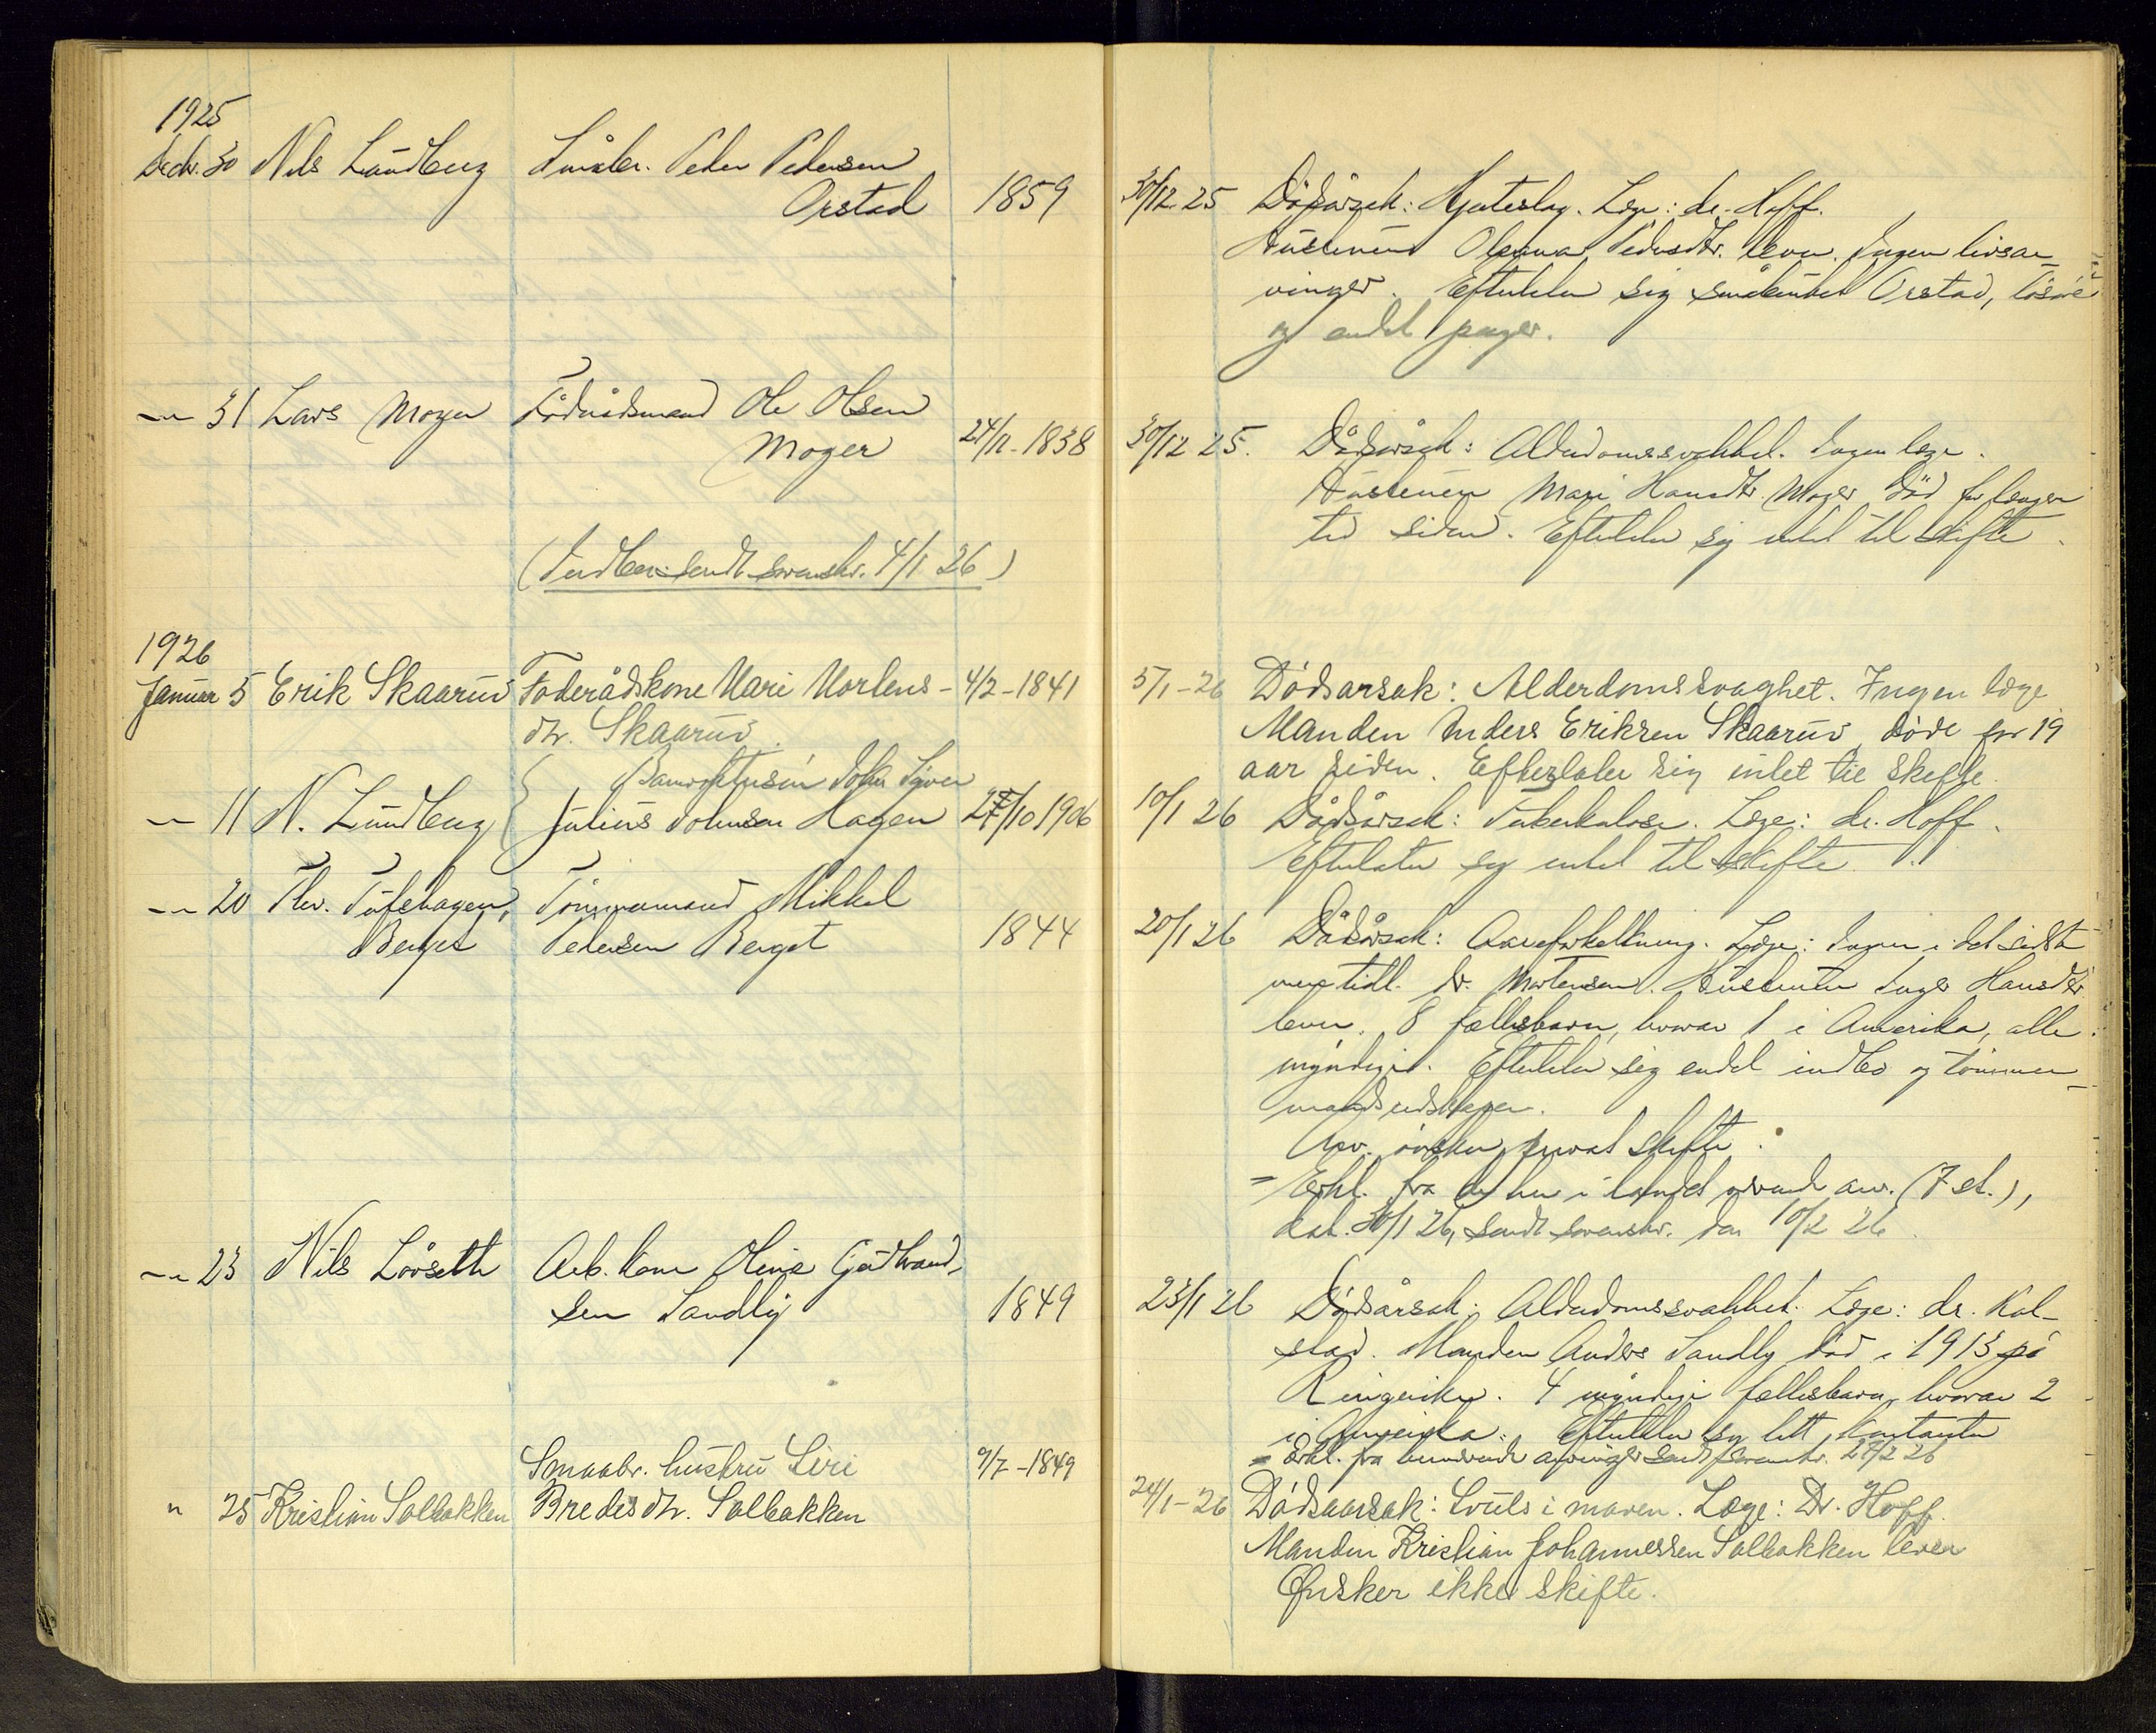 1925
Decbr. 30 Nils Lundberg Småbr. Peder Pedersen
Orstad 1859
30/12 25 Dödsårsak: Hjerteslag. Læge: dr. Hoff.
Hustruen Oleana Pedersdtr. lever. Ingen livsar-
vinger. Efterlater sig småbruket Orstad, lösöre
og endel penger.
-"- 31 Lars Moger Föderådsmand Ole Olsen
Moger 24/12-1838
30/12 25. Dödsårsak: Alderdomssvakhet. Ingen læge.
Hustruen Mari Hansdtr. Moger död for længer
tid siden. Efterlater sig intet til skifte.
(Indber. sendt sorenskr. 4/1 26)
1926
Januar 5 Erik Skaarud Foderådskone Mari Mortens-
dtr. Skaarud. 4/2-1841
5/1-26 Dödsarsak: Alderdomssvaghet. Ingen læge
Manden Anders Eriksen Skaarud döde for 19
aar siden. Efterlater sig intet til skifte.
-"- 11 N. Lundberg Julius Johnsen Hagen 27/10 1906
10/1 26 Dödsårsak: Tuberkulose. Læge: dr. Hoff.
Efterlater sig intet til skifte.
-"- 20 Thv. Tufchagen, Tömmermand Mikkel
Berget Pedersen Berget 1844
20/1 26 Dödsårsak: Aareforkalkning. Læge: Ingen i det sidste
men tidl. dr. Mortensen. Hustruen Inger Hansdtr
lever. 8 fællesbarn, hvorav 1 i Amerika, alle
myndige. Efterlater sig endel indbo og tömmer-
mandsredskaper.
Arv. önsker privat skifte.
= Erkl. fra de her i landet værende arv. (7 st.),
dat. 30/1 26, sendt sorenskr. den 10/2 26.
-"- 23 Nils Lövseth Arb. kone Oline Gudbrand-
sen Sandly 1849
23/1 26 Dödsårsak: Alderdomssvakhet. Læge: dr. Kol-
stad. Manden Anders Sandly död i 1913 på
Ringerike. 4 myndige fællesbarn, hvorav 2
i Amerika. Efterlater sig litt kontanter
= Erkl. fra arvinger sendt sorenskr. 27/2 26
Smaabr. hustru Siri 9/7-1849
" 25 Kristian Solbakken Bredesdtr. Solbakken
24/1-26 Dödsaarsak: Svulst i maven. Læge: Dr. Hoff.
Manden Kristian Johannessen Solbakken lever
Ønsker ikke skifte.